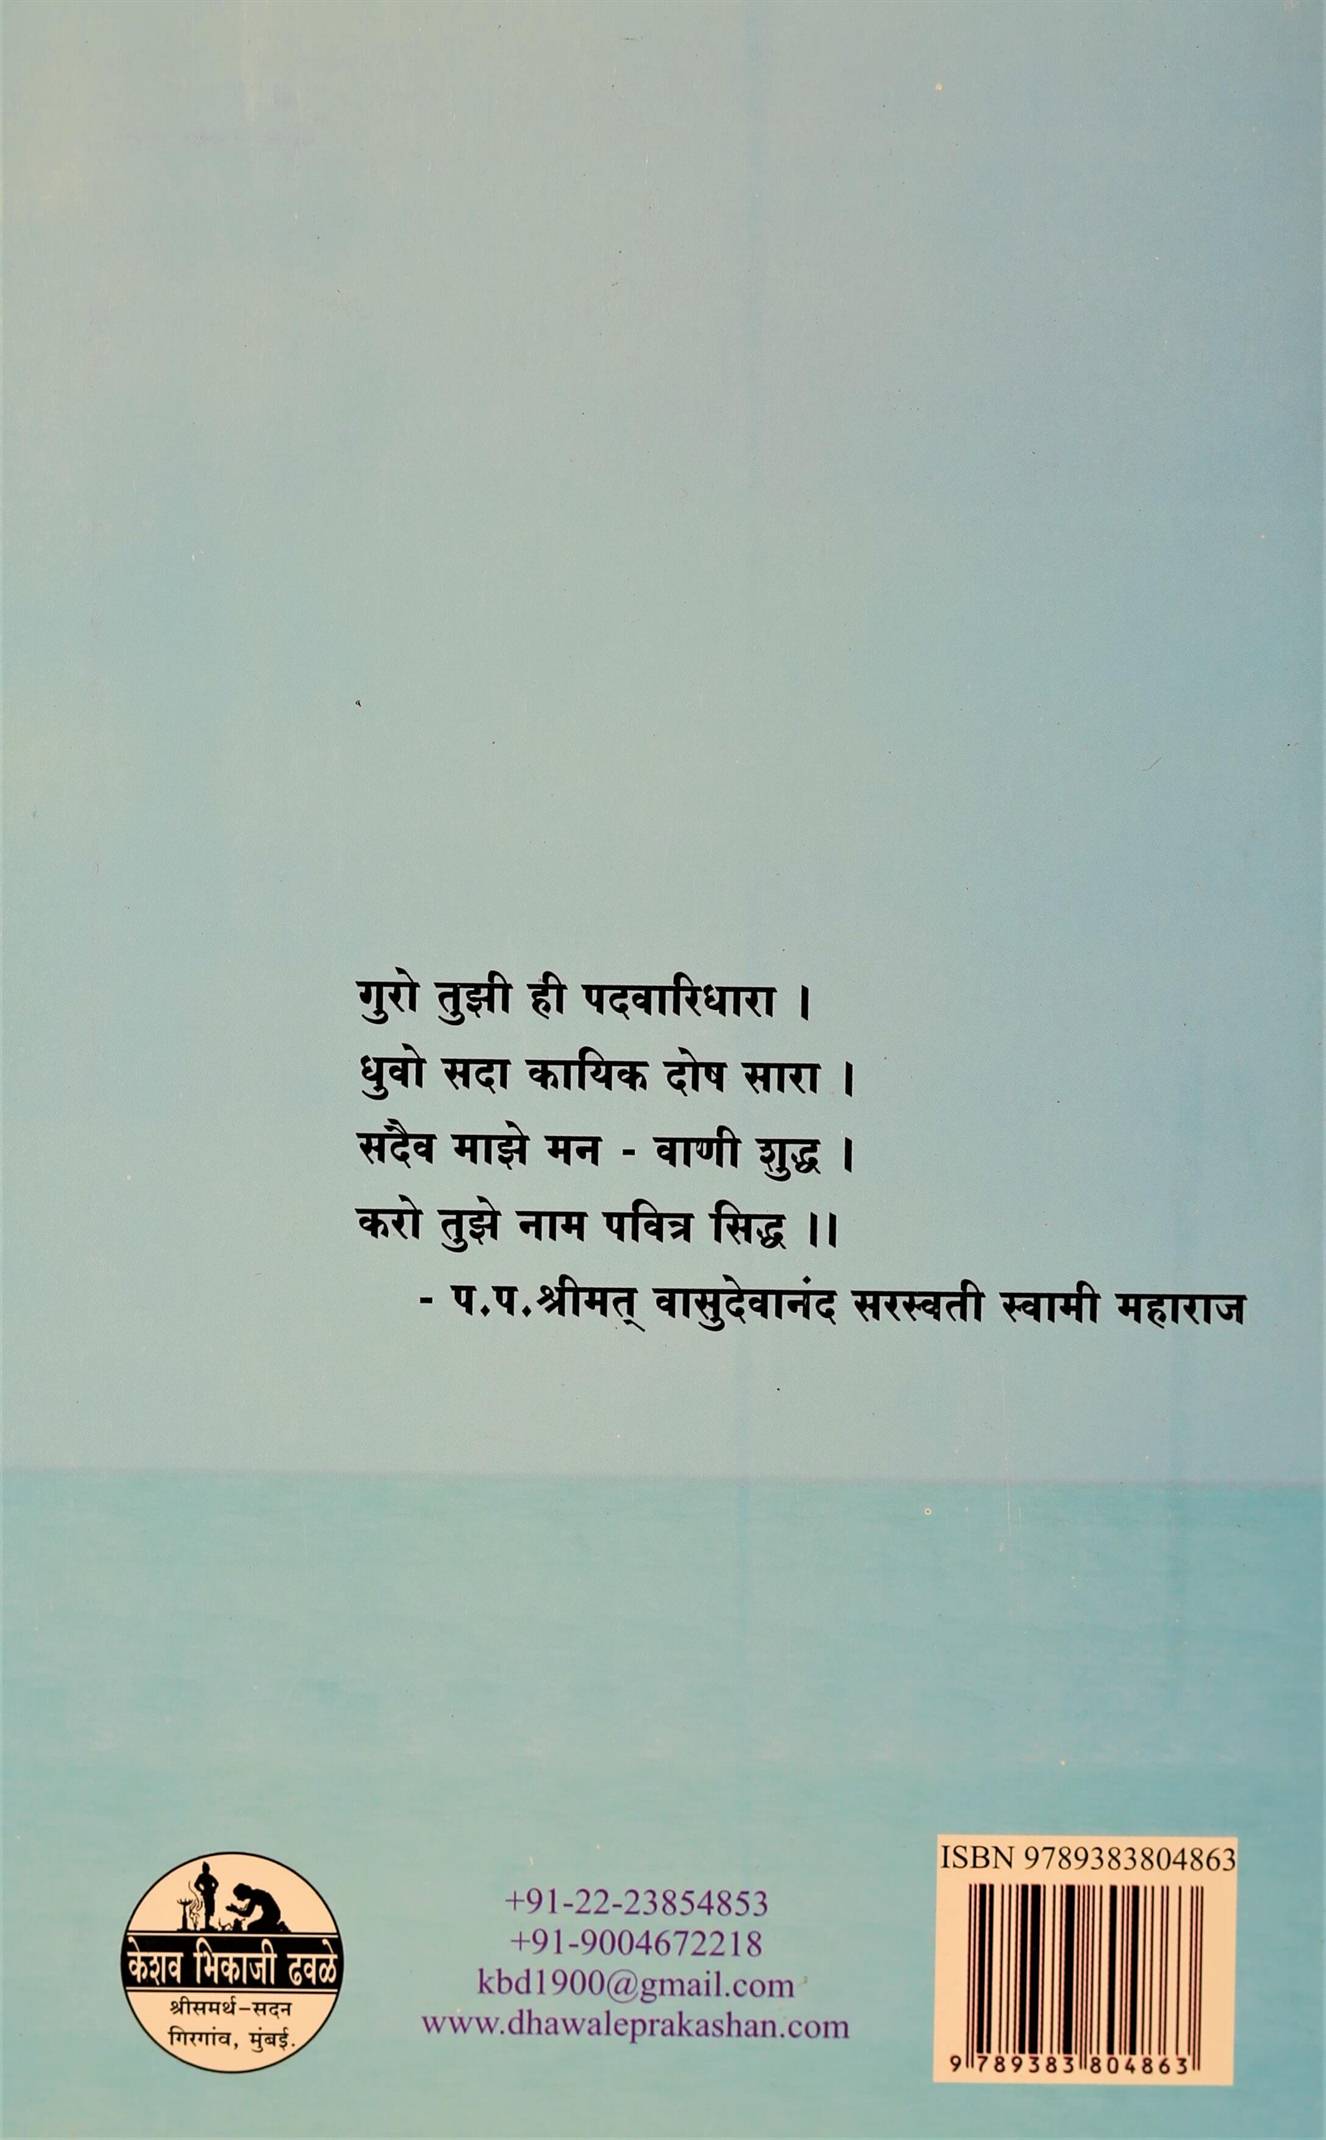 गुरो तुझी ही पदवारिधारा ।
धुवो सदा कायिक दोष सारा ।
सदैव माझे मन - वाणी शुद्ध ।
करो तुझे नाम पवित्र सिद्ध ।।
- प.प.श्रीमत् वासुदेवानंद सरस्वती स्वामी महाराज
केशव भिकाजी ढवळे
श्रीसमर्थ-सदन
गिरगांव, मुंबई.
+91-22-23854853
+91-9004672218
kbd1900@gmail.com
www.dhawaleprakashan.com
ISBN 9789383804863
9 789383 804863